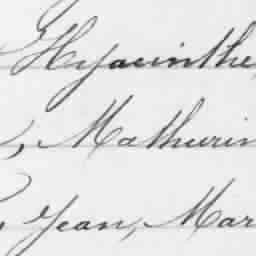 Hyacinthe
, Mathurin
, Jean, Mar